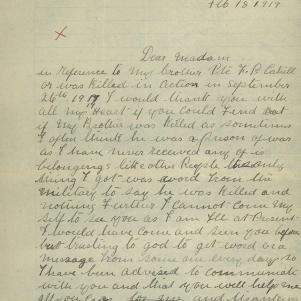 Feb 13 1919
Dear Madam
in reference to My brother Pte F. P. Cahill
or was Killed in Action in September
26th 1917 I would thank you with
all My Heart if you could Find out
if My Brother was Killed as sometimes
I often think he was a prison of war
as I have never received any of is
belongings like other People the only
thing I got was a word from the
Military to say he was Killed and
nothing Further I Cannot Come My
self to see you as I am Ill at Present
I would have come and seen you before
but trusting to god to get word or a
message From some one every day so
I have been advised to communicate
with you and that you will help me
if you can